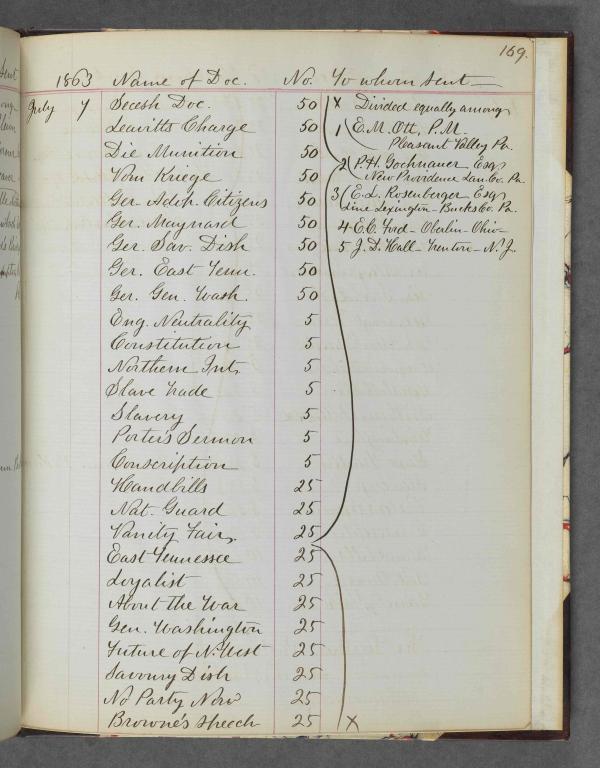 169.
1863 Name of Doc. No. To whom sent
July 7 Secesh Doc. 50 X Divided equally among
Leavitts Charge 50 1 E. M. Ott, P. M.
Pleasant Valley Pa.
Die Munition 50 2 P. H. Gochnauer Esq
Vom Kriege 50 New Providence Lan. Co. Pa.
Ger. Adop. Citizens 50 3 E. L. Rosenberger Esq
Line Lexington - Bucks Co. Pa.
Ger. Maynard 50 4 E. C. Ford - Oberlin - Ohio
Ger. Sav. Dish 50 5 J. D. Hall - Trenton - N. J.
Ger. East Tenn. 50
Ger. Gen. Wash. 50
Eng. Neutrality 5
Constitution 5
Northern Int. 5
Slave Trade 5
Slavery 5
Porter's Sermon 5
Conscription 5
Handbills 25
Nat. Guard 25
Vanity Fair, 25
East Tennessee 25
Loyalist 25
About the War 25
Gen. Washington 25
Future of N. West 25
Savoury Dish 25
No Party Now 25
Browne's Speech 25 X